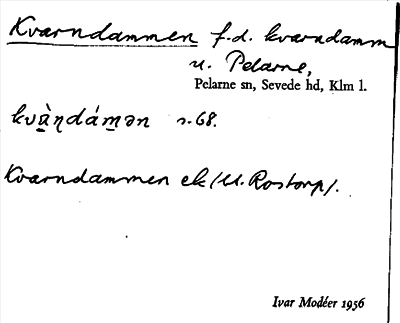 Kvarndammen f.d. kvarndamm
u. Pelarne,
Pelarne sn, Sevede hd, Klm l.
kvàṇdámən s.68.
Kvarndammen ek (U. Rostorp).
Ivar Modéer 1956